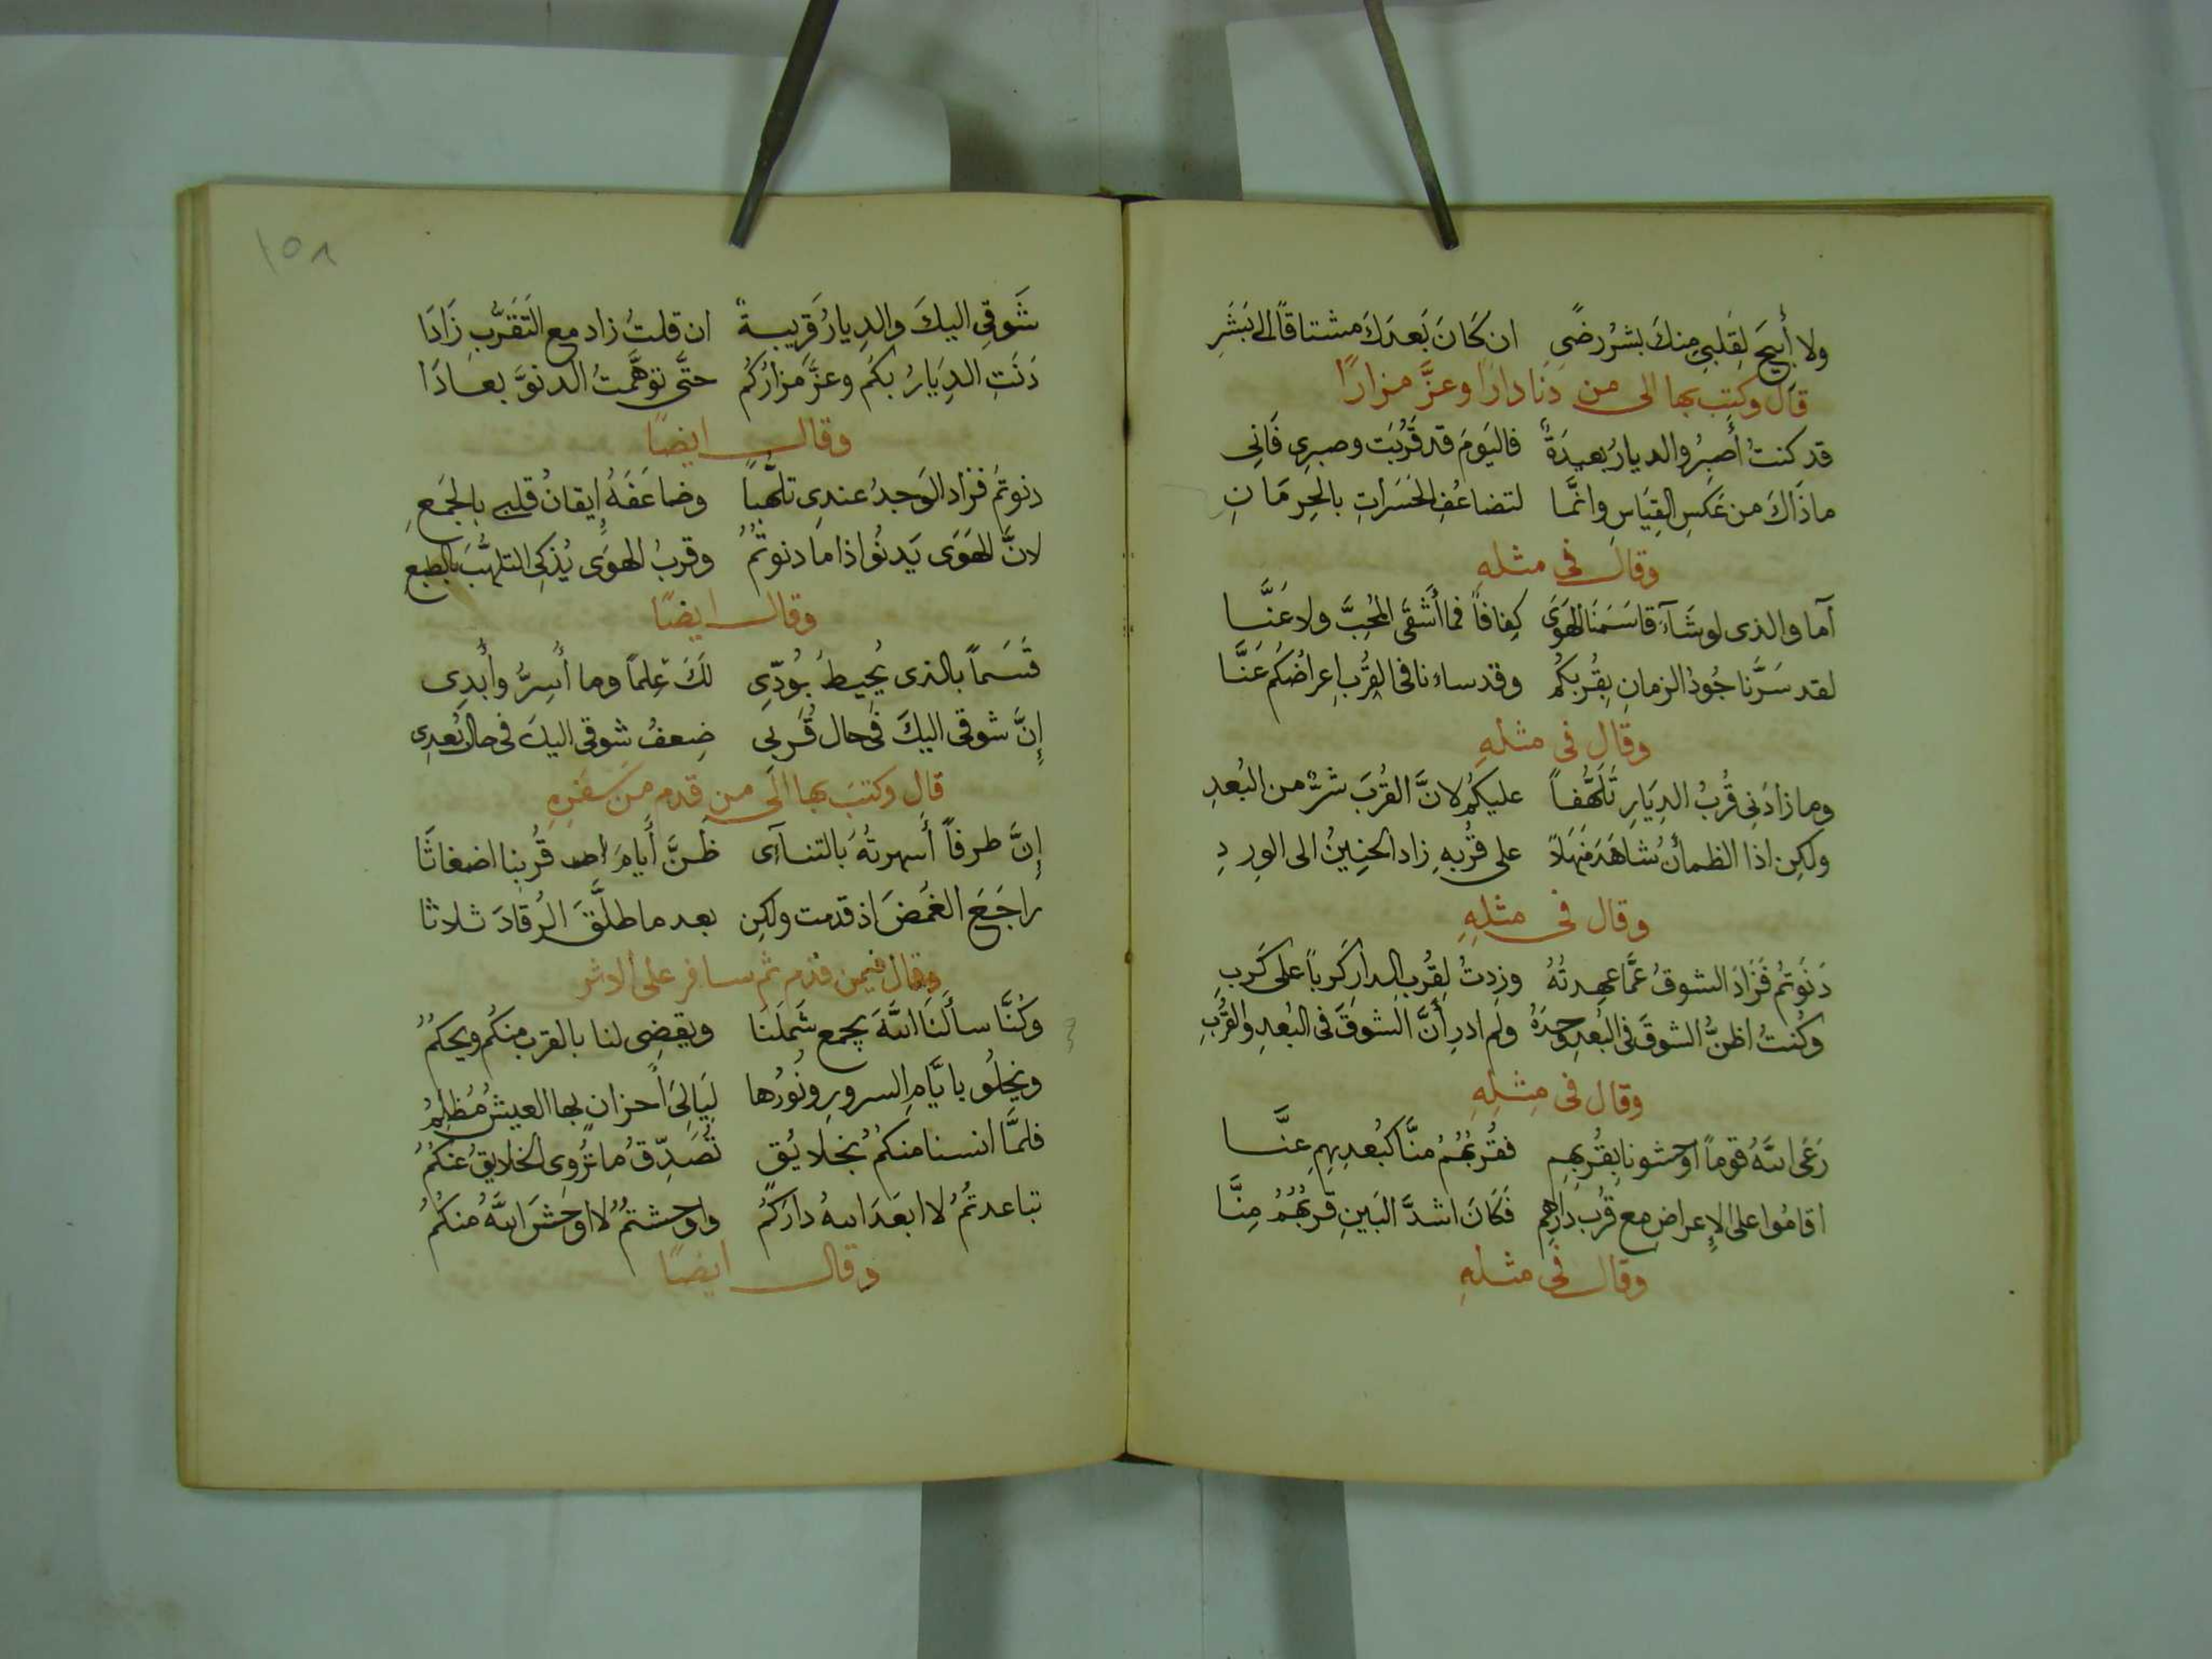 ولا أُبيحَ لِقَلبي مِنكَ بشرُ رضًى ان كَانَ بَعدَكَ مشتاقًا الى بَشَرِ
قال وكتب بها الى من دنا دارًا وعزَّ مزارًا
قد كنتُ أَصبِرُ والديارُ بعيدَةٌ فاليَومَ قد قَرُبَت وصبرِى فَانِى
ماذَاكَ من عَكسِ القِيَاسِ وانَّما لتضاعُفِ الحَسَراتِ بالحِرمَانِ
وقال فى مثلهِ
آما والذى لو شَآءَ قاسَمَنَا الهَوَى كِفافاً فما أَشقَى المُحِبَّ ولا عَنَّا
لقد سَرَّنا جُودُ الزمانِ بِقُربِكُم وقد ساءنا فى القُربِ اِعراضُكُم عَنَّا
وقال فى مثلهِ
وما زادَنِى قُربُ الدِيَارِ تَلَهُّفاً عليكُم لانَّ القُربَ شَرٌّ من البُعدِ
ولكِن اذا الظمأنُ شاهَدَ مَنهَلاً على قُربِهِ زاد الحَنِينُ الى الوِردِ
وقال فى مثلِهِ
دَنَوتُم فَزَادَ الشوقُ عمَّا عهِدتُهُ وزِدتُ لِقُربِ الدارِ كَرباً على كَربِ
وكُنتُ اظنُّ الشوقَ فى البُعدِ وحدَهُ ولم ادرِ أَنَّ الشوقَ فى البُعدِ والقُربِ
وقال فى مِثلِهِ
رَعَى اللهُ قوماً اوحشونا بِقُربِهِم فقُربُهُمُ منَّا كبُعدِهِمِ عنَّا
اقامُوا على الاِعراض مع قُربِ دَارِهِم فَكَانَ اشدَّ البَينِ قربُهُمُ مِنَّا
وقال فى مثلهِ
١٥٨
شَوقِى اليكَ والدِيارُ قَرِيبةٌ ان قلتُ زاد مع التَقَرُّبِ زَادَا
دَنَتِ الدِيَارُ بكُم وعزَّ مزارُكُم حتَّى توَهَّمتُ الدنوَّ بعادَا
وقال ايضًا
دنوتُم فزاد الوَجدُ عندِى تلهُّباً وضاعَفَهُ إِيقانُ قلبى بالجَمعِ
لانَّ الهَوَى يَدنُوا اذا ما دنوتُمُ وقربُ الهوَى يُذكِى التلهُّبَ بالطبعِ
وقال ايضًا
قَسَماً بالذى يُحِيطُ بوُدِّى لَكَ عِلماً وما أُسِرُّ وأُبدِى
إِنَّ شوقى اليكَ فى حال قُربى ضِعفُ شوقى اليكَ فى حال بُعدِى
قال وكتب بها الى من قدم من سَفَرِهِ
إِنَّ طرفاً أَسهرتُهُ بالتناآى ظَنَّ أَيامَ قُربنا اضغاثَا
راجَعَ الغَمضَ اذ قدمت ولكِن بعد ما طلَّقَ الرُقادَ ثلاثا
وقال فيمن قدم ثم سافر على الاثر
وكُنَّا سأَلنَا اللهَ يجمع شَملَنا ويقضِى لنا بالقرب منكُم ويحكمُ
ونجلُو بايَّامِ السرورِ ونُورُها لَيَالِىَ أَحزانٍ بها العيشُ مُظلِمُ
فلمَّا انسنا منكمُ بخلايُقٍ تُصَدِّقُ ما تُروِى الخلايقُ عَنكُمُ
تباعدتُمُ لا ابعَدَ اللهُ دارَكُم واوحشتمُ لا اوحَشَ اللهُ منكُمُ
وقال ايضًا